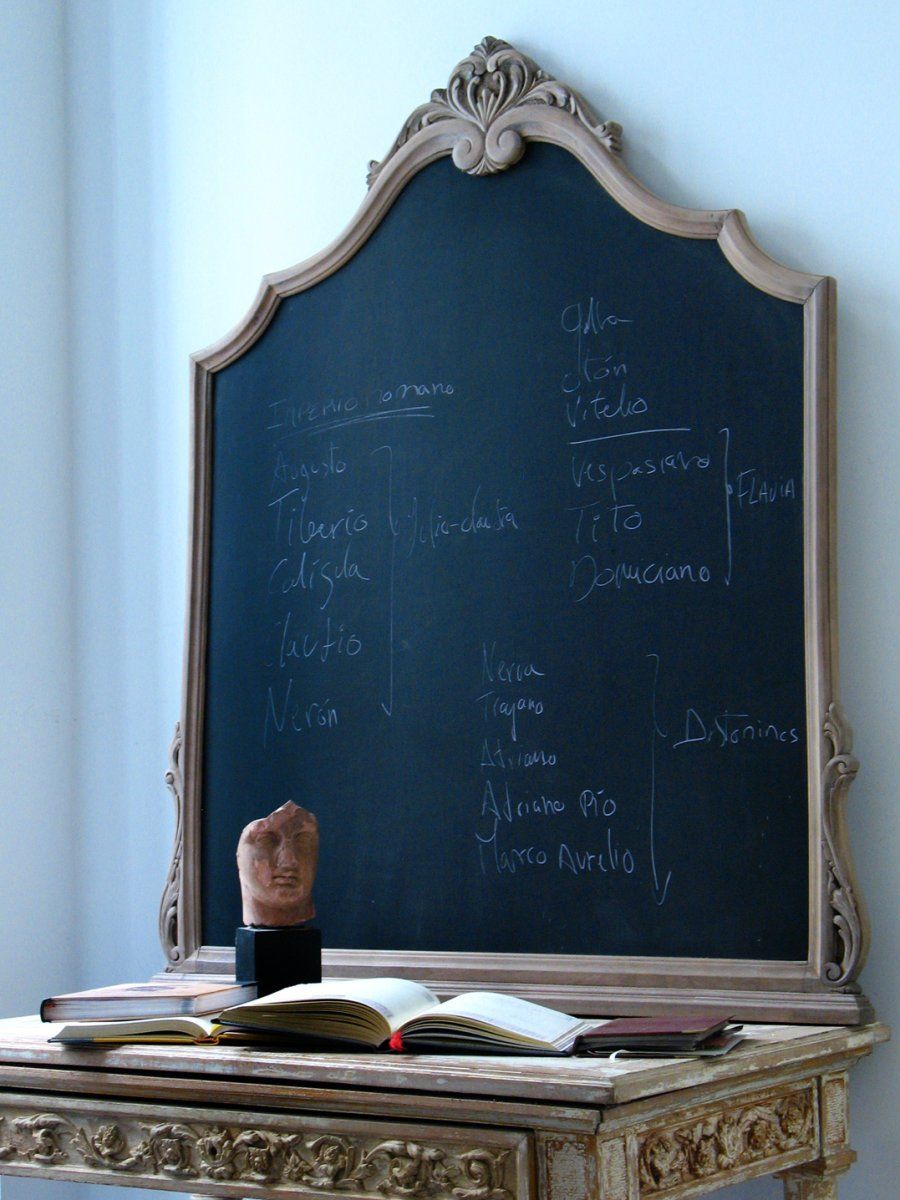 Imperio romano
Augusto
Tiberio
Calígula
Claudio
Nerón
Julio-claudia
Galba
Otón
Vitelio
Vespasiano
Tito
Domiciano
FLAVIA
Nerva
Trajano
Adriano
Adriano Pío
Marco Aurelio